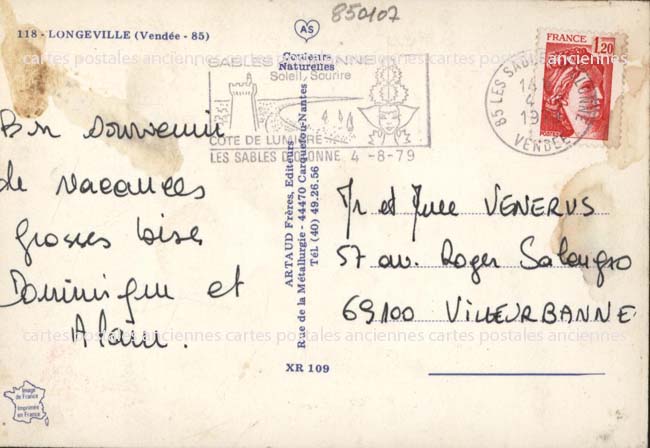 850107
118 - LONGEVILLE (Vendée - 85)
AS
Couleurs
Naturelles
SABLES D'OLONNE
Soleil, Sourire
COTE DE LUMIERE
LES SABLES D'OLONNE 4-8-79
85 LES SABLES D'OLONNE
14
4
19
VENDEE
FRANCE
1,20
POSTES
cartes postales anciennes cartes postales anciennes cartes postales anciennes
Bon souvenir
de vacances
grosses bises
Dominique et
Alain.
ARTAUD Frères, Editeurs
Rue de la Métallurgie - 44470 Carquefou-Nantes
Tél. (40) 49.26.56
Mr et Mme VENERUS
57 av. Roger Salengro
69100 VILLEURBANNE
cartes postales anciennes cartes postales anciennes cartes postales anciennes
XR 109
Image
de France
Imprimée
en France